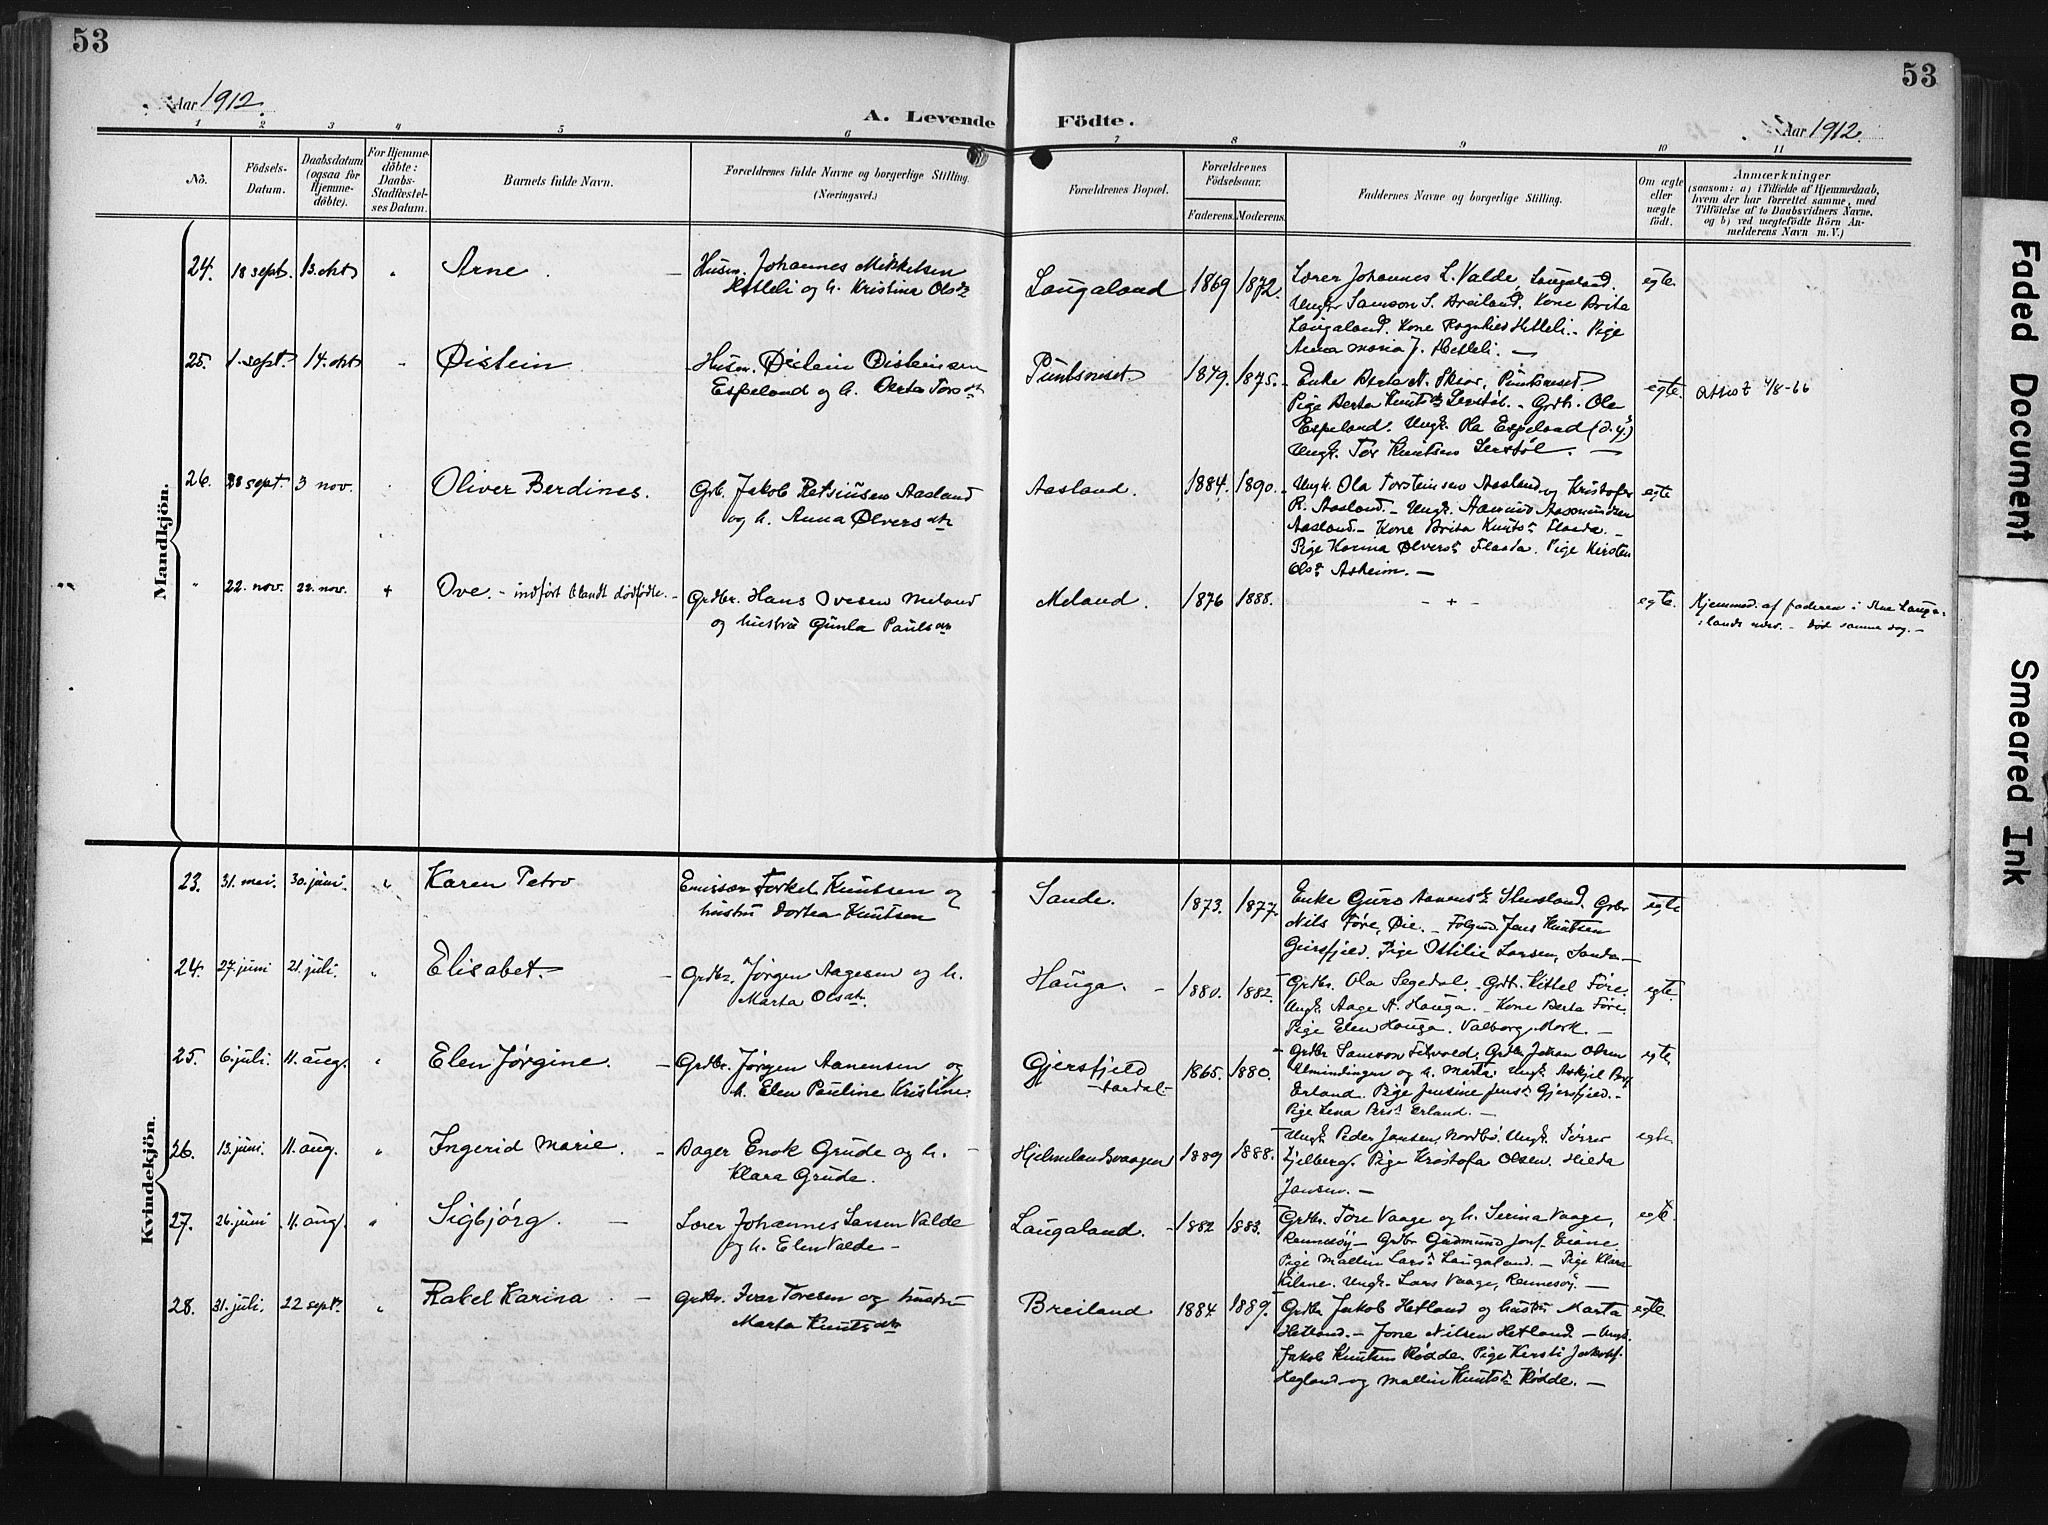 53
53
Aar 1912.
A. Levende Födte.
Aar 1912.
1 2 3 4 5 6 7 8 9 10 11
No.
Födsels-
Datum.
Daabsdatum
(ogsaa for
Hjemme-
döbte).
For Hjemme-
döbte:
Daabs-
Stadfæstel-
ses Datum.
Barnets fulde Navn.
Forældrenes fulde Navne og borgerlige Stilling.
(Næringsvei.)
Forældrenes Bopæl.
Forældrenes
Födselsaar.
Faderens. Moderens.
Faddernes Navne og borgerlige Stilling.
Om ægte
eller
uægte
födt.
Anmærkninger
(saasom: a) i Tilfælde af Hjemmedaab,
hvem der har forrettet samme, med
Tilföielse af to Daabsvidners Navne,
og b) ved uægtefödte Börn An-
melderens Navn m. V.)
Mandkjön.
24. 18 sept. 13. okt " Arne.
Husm. Johannes Mikkelsen
Hetleli og h. Kristina Olsdt
Laugaland 1869 1872.
Lærer Johannes L. Valde, Laugaland.
Ungkr Samson S. Breiland. Kone Brita
Laugaland. Kone Ragnhild Hetleli. Pige
Anna Maria J. Hetleli. —
egte.
25. 1. sept. 14. okt " Øistein.
Husm. Øistein Øisteinsen
Espeland og h. Berta Torsdt
Puntsnæset. 1849. 1875.
Enke Berta N. Skor, Puntsnæset
Pige Berta Knutsdt Leirstøl. Grdb. Ole
Espeland. Ungk. Ola Espeland (d.y.)
Ungk. Tor Knutsen Leirstøl. —
egte. Attest 4/8-66
26. 28 sept. 3 nov. " Oliver Berdines.
Grb. Jakob Aasland
og h. Anna Ølversdtr
Aasland. 1884. 1890.
Ungk. Ola Torsteinsen Aasland og Kristofer
R. Aasland. Ungk. Aasmundsen
Aasland. Kone Brita Knutsdt Flaada. —
Pige Karina Ølversdt Flaada. Pige Kirsten
Olsdt Askeim. —
egte
" 22. nov. 22. nov. + Ove. - indført blandt dødfødte. —
Grdbr. Hans Ovesen Meland
og hustru Gunla Paulsdtr
Meland. 1876 1888. - + -
egte. Hjemmed. af faderen i Lauga-
lands nærv. - Død samme dag. -
Kvindekjön.
23. 31. mai. 30. juni. " Karen Petra
Emissær Torkel Knutsen og
hustru Dortea Knutsen
Sande. 1873. 1877.
Enke Guro Aanensdt Stensland. Grbr
Nils Føre, Øie. - Jens Knutsen
Geirsfjeld. Pige Ottilie Larsen, Sande —
egte
24. 27. juni 21. juli. " Elisabet.
Grdbr. Jørgen Aagesen og h.
Marta Olsdtr.
Hauga. 1880. 1882.
Grdbr. Ola Segedal. Grdb. Kittel Føre.
Ungk. Aage A. Hauga. - Kone Berta Føre.
Pige Elen Hauga. Valborg Mork. —
egte.
25. 6. juli. 11. aug. " Elen Jørgine.
Grdbr. Jørgen Aanensen og
h. Elen Pauline Kristine.
Gjersfjeld
- Aardal - 1865. 1880.
Grdbr Samson Grdbr Johan Olsen
Almindingen og h. Marta. Ungk. Askjel
Erland. Pige Jensine Jensdt Gjersfjeld. —
Pige Lena Persdt Erland. —
egte
26. 13. juni. 11. aug. " Ingerid Marie.
Bager Enok Grude og h.
Klara Grude.
Hjelmelandsvaagen 1889 1888.
Ungk. Peder Jansen, Nordbø. Ungk. Tørres
Fjelberg. Pige Kristofa Olsen. Hilda
Jansen. —
egte
27. 26. juni 11. aug. " Sigbjørg.
Lærer Johannes Larsen Valde
og h. Elen Valde —
Laugaland. 1882 1883.
Grdbr. Tore Vaage og h. Serina Vaage,
Rennesøy - Grdbr Gudmund Jons. Eiane
Pige Mallin Larsdt Laugaland. - Pige Klara
Eikne. Ungk. Lars Vaage, Rennesøy. —
egte.
28. 31. juli. 22 sept. " Rakel Karina
Grdbr. Ivar Toresen og hustru
Marta Knutsdtr
Breiland 1884 1889.
Grdbr Jakob Hetland og hustru Marta
Hetland. - Jone Nilsen Hetland - Ungk.
Jakob Knutsen Rødde. Pige Kersti Jakobs.
Hegland og Mallin Knutsdt Rødde. —
egte.
Faded Document
Smeared Ink